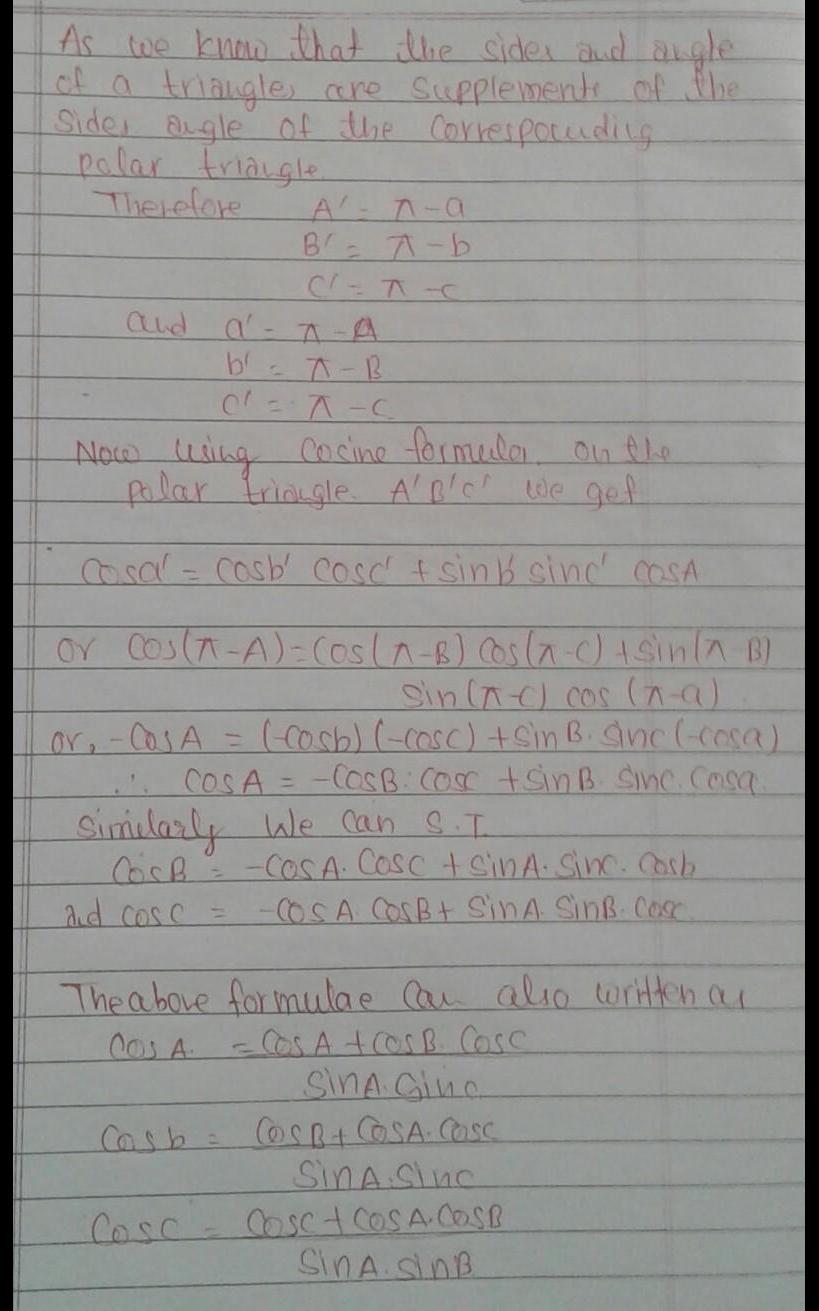 As we know that the sides and angle
of a triangles are supplements of the
sides angle of the corresponding
polar triangle
Therefore A' = π-a
B' = π-b
C' = π-c
and a' = π-A
b' = π-B
C' = π-C
Now using cosine formula on the
polar triangle. A'B'C' we get
cosa' = cosb' cosc' + sinb' sinc' cosA
or cos(π-A)=cos(π-B) cos(π-C)+sin(π-B)
sin(π-C) cos (π-a)
or, -cosA = (-cosb) (-cosc) + sinB. sinc (-cosa)
∴ cosA = -cosB. cosc + sinB. sinc. cosa
Similarly We can S.T.
CosB = -cosA. cosc + sinA. sinc. cosb
and cosc = -cosA. cosB + SinA. SinB. cosc
The above formulae can also written as
cosA. = cosA + cosB. cosc
SinA. Sinc
Cosb = cosB + cosA. cosc
SinA. Sinc
Cosc = cosc + cosA. cosB
SinA. sinB